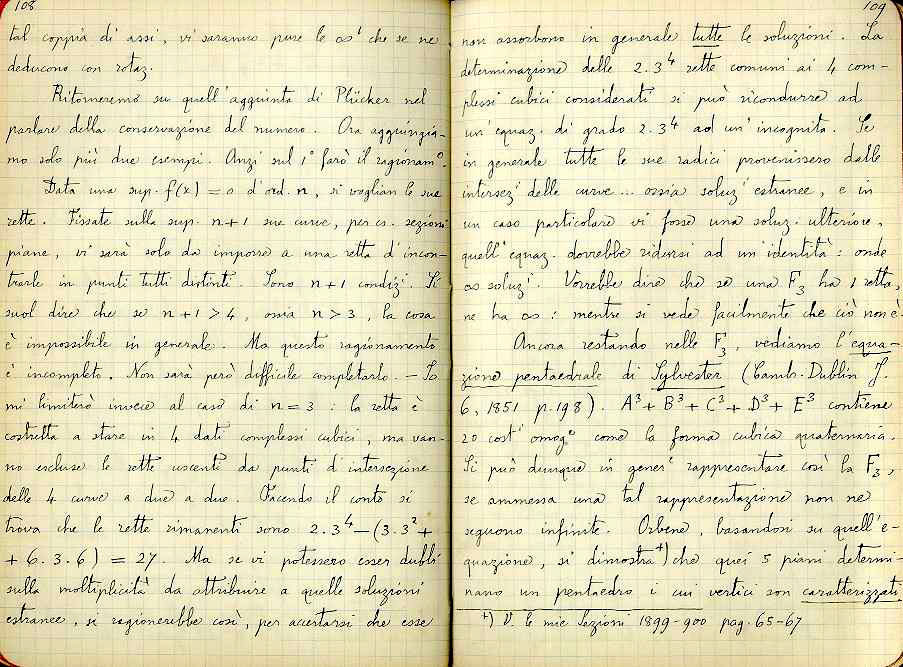 108
tal coppia di assi, vi saranno pure le ∞¹ che se ne
deducono con rotaz.
Ritorneremo su quell'aggiunta di Plücker nel
parlare della conservazione del numero. Ora aggiungia-
mo solo più due esempi. Anzi sul 1° farò il ragionam.°
Data una sup. f(x) = 0 d'ord. n, si voglian le sue
rette. Fissate sulla sup. n+1 sue curve, per es. sezioni
piane, vi sarà solo da imporre a una retta d'incon-
trarle in punti tutti distinti. Sono n+1 condiz.ⁱ Si
suol dire che se n+1 > 4, ossia n > 3, la cosa
è impossibile in generale. Ma questo ragionamento
è incompleto. Non sarà però difficile completarlo. – Io
mi limiterò invece al caso di n = 3 : la retta è
costretta a stare in 4 dati complessi cubici, ma van-
no escluse le rette uscenti da punti d'intersezione
delle 4 curve a due a due. Facendo il conto si
trova che le rette rimanenti sono 2.3⁴ – (3.3² +
+ 6.3.6) = 27 Ma se vi potessero esser dubbî
sulla moltiplicità da attribuire a quelle soluzioni
estranee, si ragionerebbe così, per accertarsi che esse
109
non assorbono in generale tutte le soluzioni. La
determinazione delle 2.3⁴ rette comuni ai 4 com-
plessi cubici considerati si può ricondurre ad
un'equaz. di grado 2.3⁴ ad un'incognita. Se
in generale tutte le sue radici provenissero dalle
intersez.ⁱ delle curve ... ossia soluz.ⁱ estranee, e in
un caso particolare vi fosse una soluz. ulteriore,
quell'equaz. dovrebbe ridursi ad un'identità : onde
∞ soluz.ⁱ. Vorrebbe dire che se una F₃ ha 1 retta,
ne ha ∞ : mentre si vede facilmente che ciò non è.
Ancora restando nelle F₃, vediamo l'equa-
zione pentaedrale di Sylvester (Camb. Dublin J.
6, 1851 p. 198). A³ + B³ + C³ + D³ + E³ contiene
20 cost.ⁱ omog.ᵉ come la forma cubica quaternaria.
Si può dunque in gener.ˡ rappresentare così la F₃,
se ammessa una tal rappresentazione non ne
seguono infinite. Orbene, basandosi su quell'e-
quazione, si dimostra +) che quei 5 piani determi-
nano un pentaedro i cui vertici son caratterizzati
+) V. le mie Lezioni 1899-900 pag. 65-67